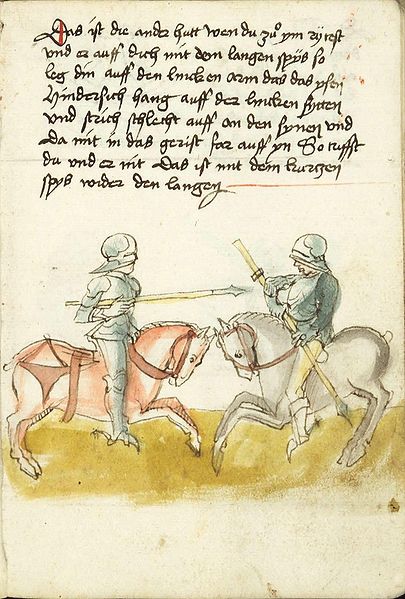 Das ist die ander hutt wen du zuͦ ym rÿtest
vnd er auff dich mit dem langen spÿs so
leg din auff den lincken arm das das ysen
hindersich hang auff der lincken sÿtten
vnd strich schlecht auff an den synen vnd
da mit in das gerist far auff yn So trifft
du vnd er nit Das ist mit dem kurtzen
spÿs wider den langen